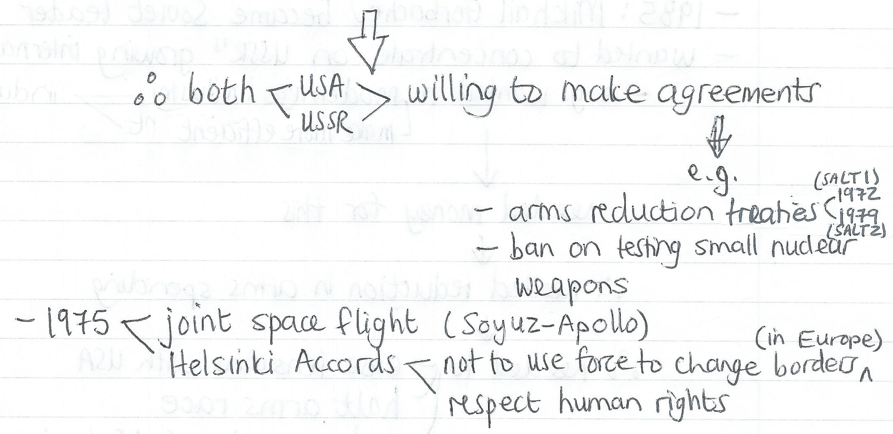 ∴ both < USA USSR > willing to make agreements
e.g.
(SALT1)
- arms reduction treaties < 1972
1979
(SALT2)
- ban on testing small nuclear
weapons
- 1975 < joint space flight (Soyuz-Apollo)
(in Europe)
Helsinki Accords < not to use force to change borders ^
respect human rights